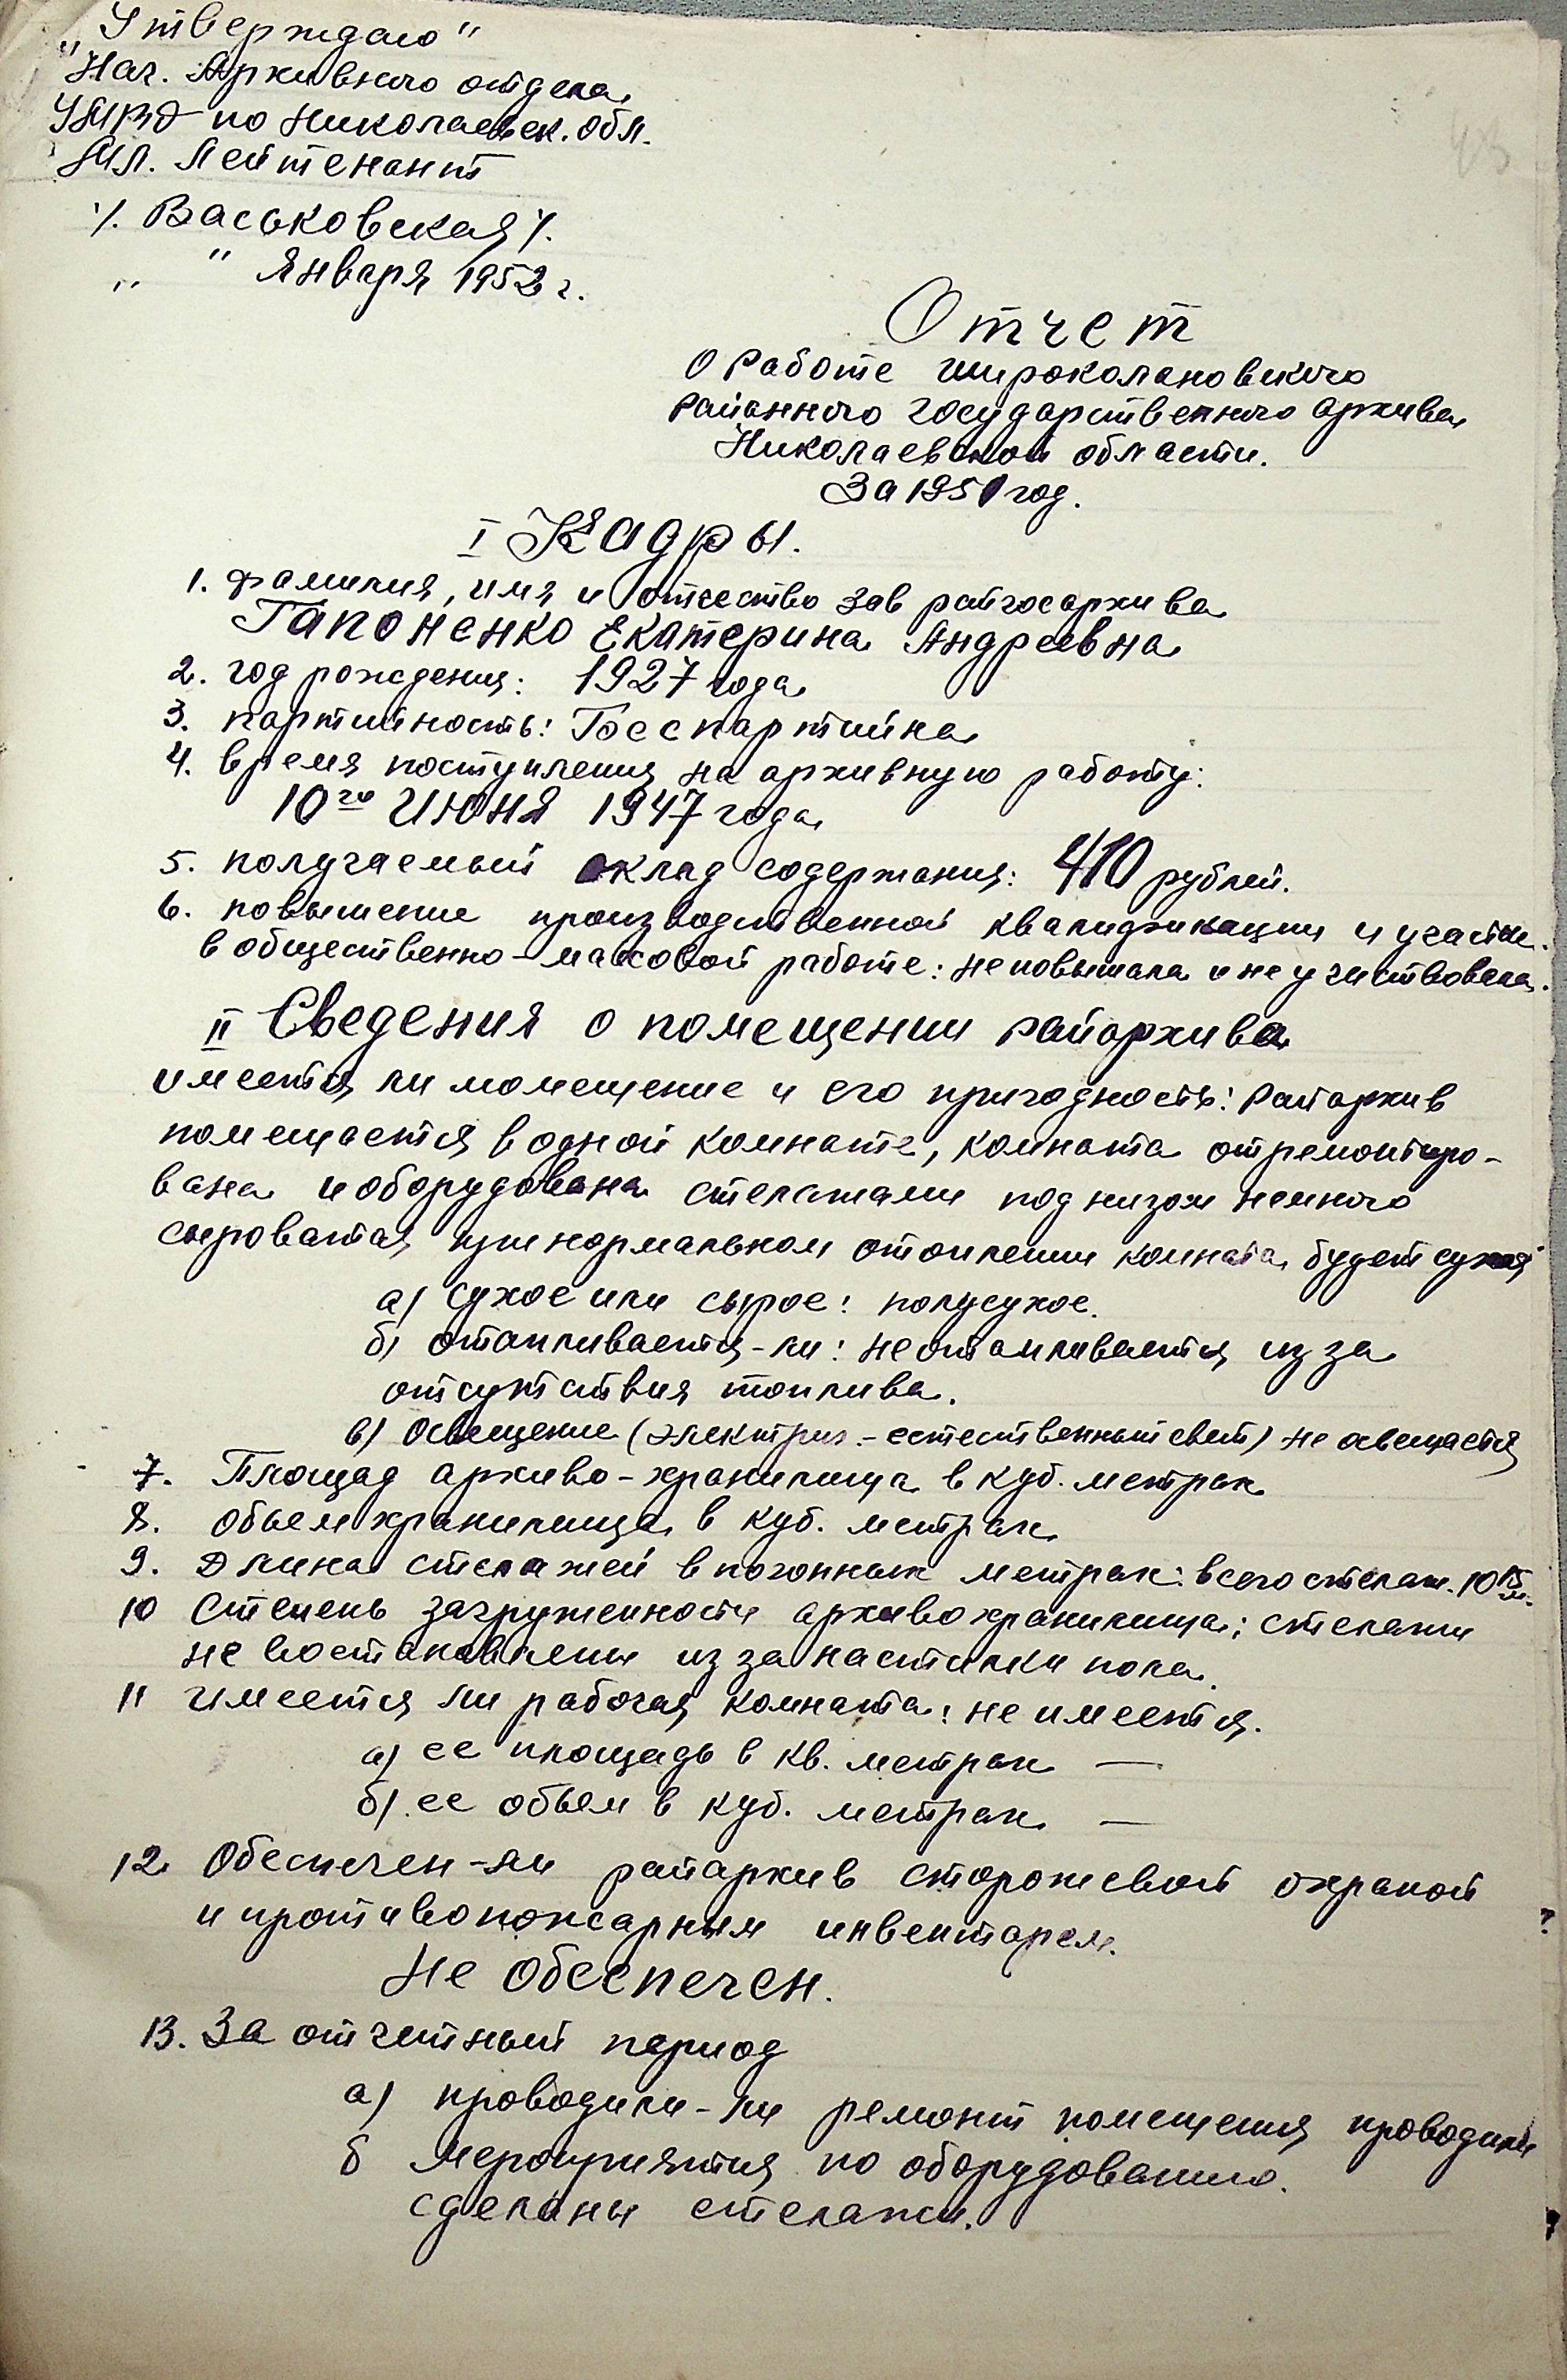 „Утверждаю"
"Нач. Архивного отдела
УМВД по Николаевск. обл.
Мл. Лейтенант
/. Васьковская /.
„ " Января 1952 г.
Отчет
О работе Широколановского
районного государственного архива
Николаевской области.
За 1951 год.
I Кадры.
1. Фамилия, имя и отчество зав райгосархива
Гапоненко Екатерина Андреевна
2. год рождения: 1927 года
3. партийность: Беспартийна
4. время поступления на архивную работу:
10го Июня 1947 года
5. получаемый оклад содержания: 410 рублей.
6. повышение производственной квалификации и участие
в общественно-массовой работе: не повышала и не участвовала.
II Сведения о помещении райархива
имеется ли помещение и его пригодность: Райархив
помещается в одной комнате, комната отремонтиро-
вана и оборудована стелажами под низом немного
сыроватая при нормальном отоплении комната будет сухая
а) Сухое или сырое: полусухое.
б) отапливается-ли: не отапливается из за
отсутствия топлива.
в) Освещение (электрич.-естественный свет) не освещается
7. Площад архиво-хранилища в куб. метрах
8. обьем хранилища в куб. метрах
9. Длина стелажей в погонных метрах: всего стелаж. 10
10 Степень загруженности архивохранилища: стелажи
не востановлены из за настилки пола.
11 Имеется ли рабочая комната: не имеется.
а) ее площадь в кв. метрах —
б). ее обьем в куб. метрах —
12. Обеспечен-ли райархив сторожевой охраной
и противопожсарным инвентарем.
Не обеспечен.
13. За отчетный период
а) проводили-ли ремонт помещения проводили
б мероприятия по оборудованию.
сделаны стелажи.